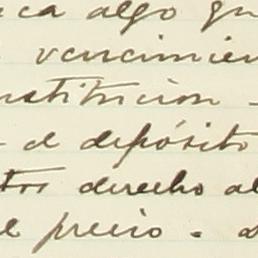 ca algo qu
vencimien
nstitucion -
- el depósito
tos derecho al
el precio - a